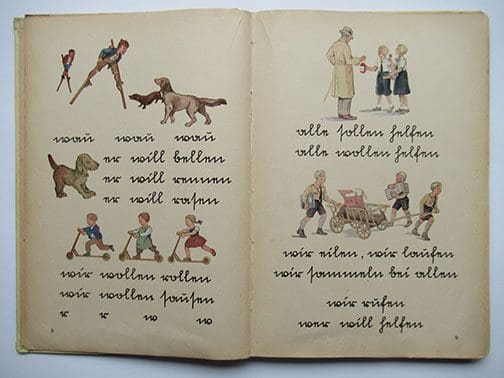 wau wau wau
er will bellen
er will rennen
er will rasen
wir wollen rollen
wir wollen sausen
r r w w
8
alle sollen helfen
alle wollen helfen
wir eilen, wir laufen
wir sammeln bei allen
wir rufen
wer will helfen
9